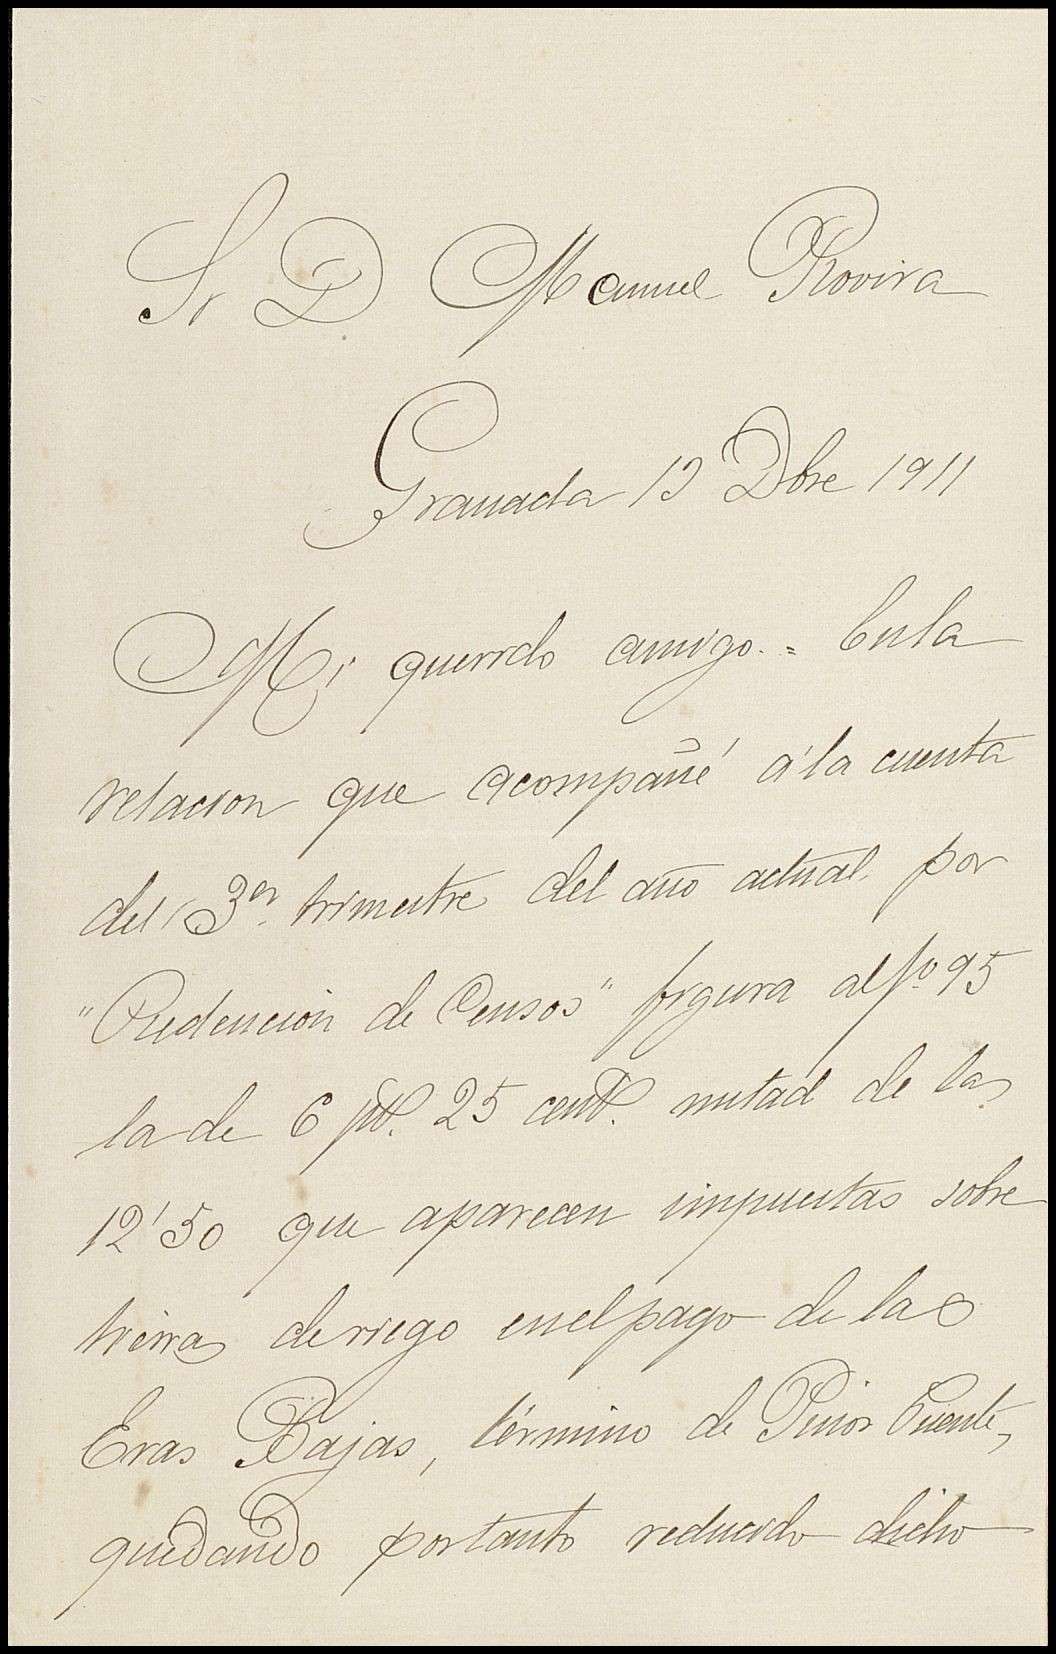 Sr D. Manuel Rovira
Granada 13 Dbre 1911
Mi querido amigo. = En la
relacion que acompañé á la cuenta
del 3er trimestre del año actual por
"Redención de Censos" figura al fo. 95
la de 6 pts. 25 cents. mitad de las
12'50 que aparecen impuestas sobre
tierras de riego en el pago de las
Eras Bajas, término de Pinos Puente,
quedando por tanto reducido dicho